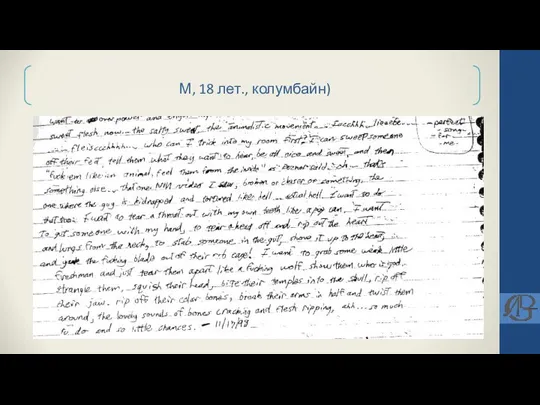 М, 18 лет., колумбайн)
want to overpower and
sweet flesh now - the salty sweet, the animalistic movement.. fccchh.. lieeebe..
... fleisccchhhh... who can I trick into my room first? I can sweep someone
off their feet, tell them what they want to hear, be all nice and sweet, and then
"fuck em like an animal, feel them from the inside" as Reznor said. oh - that's
something else.. that one NIN video I saw, broken or closer or something, the
one where the guy is kidnapped and tortured like hell.. actual hell. I want to do
that too. I want to tear a throat out with my own teeth like a pop can. I want
to gut someone with my hand, to tear a head off and rip out the heart
and lungs from the neck, to stab someone in the gut, shove it up to the heart,
and yank the fucking blade out of their rib cage! I want to grab some weak little
freshman and just tear them apart like a fucking wolf. show them who is god.
strangle them, squish their head, bite their temples into the skull, rip off
their jaw. rip off their colar bones, break their arms in half and twist them
around, the lovely sounds of bones cracking and flesh ripping, ahh... so much
to do and so little chances. - 11/17/98
- perfect
- song -
- for -
- me -